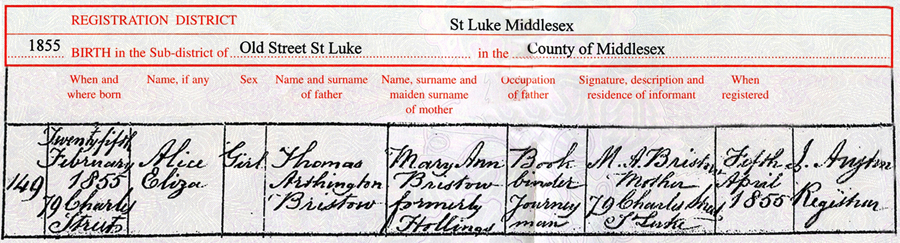 REGISTRATION DISTRICT St Luke Middlesex
1855 BIRTH in the Sub-district of Old Street St Luke in the County of Middlesex
When and where born
Name, if any
Sex
Name and surname of father
Name, surname and maiden surname of mother
Occupation of father
Signature, description and residence of informant
When registered
149
Twenty fifth
February
1855
79 Charles
Street
Alice
Eliza
Girl
Thomas
Arthington
Bristow
Mary Ann
Bristow
formerly
Hollings
Book
binder
Journey
man
M. A. Bristow
Mother
79 Charles Street
St Luke
Fifth
April
1855
J.
Registrar